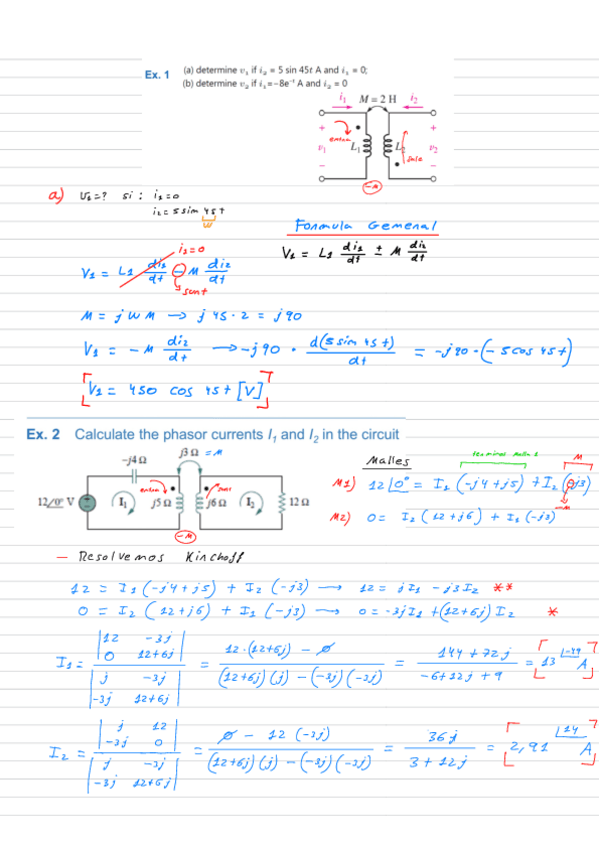 Ex. 1 (a) determine v₁ if i₂ = 5 sin 45t A and i₁ = 0;
(b) determine v₂ if i₁ = −8e⁻ᵗ A and i₂ = 0
i₁ M = 2 H i₂
+ entra L₁ L₂ sale +
v₁ v₂
− −
−M
a) V₁=? si: i₁=0
i₂=5sin 45t
w
Formula General
V₁ = L₁ di₁/dt ± M di₂/dt
i₁=0
V₁ = L₁ di₁/dt − M di₂/dt
M = jwM → j45·2 = j90
V₁ = −M di₂/dt → −j90 · d(5sin 45t)/dt = −j90·(−5cos 45t)
[V₁ = 450 cos 45t [V]]
Ex. 2 Calculate the phasor currents I₁ and I₂ in the circuit
−j4 Ω j3 Ω = M
12/0° V I₁ entra j5 Ω j6 Ω sale I₂ 12 Ω
−M
Malles
M
M1) 12 |0° = I₁ (−j4+j5) + I₂ (−j3)
−M
M2) 0 = I₂ (12+j6) + I₁ (−j3)
— Resolvemos Kirchoff
12 = I₁ (−j4+j5) + I₂ (−j3) → 12 = jI₁ − j3I₂ **
0 = I₂ (12+j6) + I₁ (−j3) → 0 = −3jI₁ + (12+6j) I₂ *
I₁ = |12 −3j; 0 12+6j| / |j −3j; −3j 12+6j| = 12·(12+6j) − 0 / (12+6j)(j) − (−3j)(−3j) = 144+72j / −6+12j+9 = [13 |-49 A]
I₂ = |j 12; −3j 0| / |j −3j; −3j 12+6j| = 0 − 12(−3j) / (12+6j)(j) − (−3j)(−3j) = 36j / 3+12j = [2,91 |14 A]